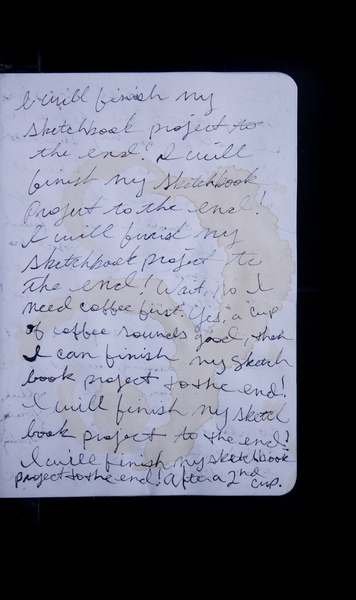 I will finish my
sketchbook project to
the end. I will
finish my sketchbook
project to the end!
I will finish my
sketchbook project to
the end! Wait, no I
need coffee first. Yes, a cup
of coffee sounds good, then
I can finish my sketch
book project to the end!
I will finish my sketch
book project to the end!
I will finish my sketchbook
project to the end! After a 2nd
cup.